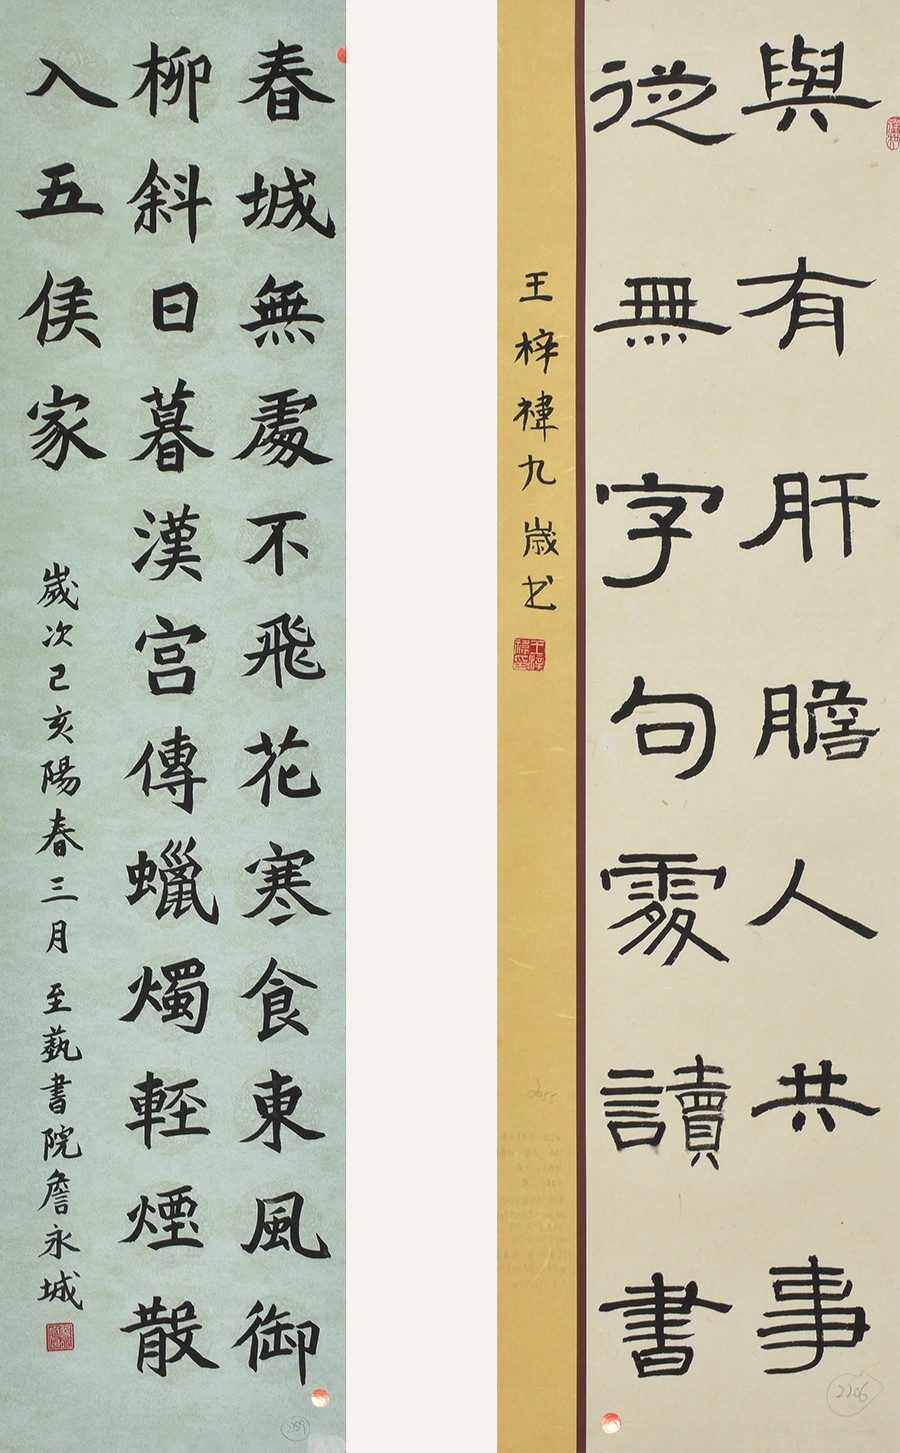 與有肝膽人共事
從無字句處讀書
王梓禕九歲书
2206
春城無處不飛花寒食東風御
柳斜日暮漢宮傳蠟燭輕煙散
入五侯家
歲次己亥陽春三月至藝書院詹永城